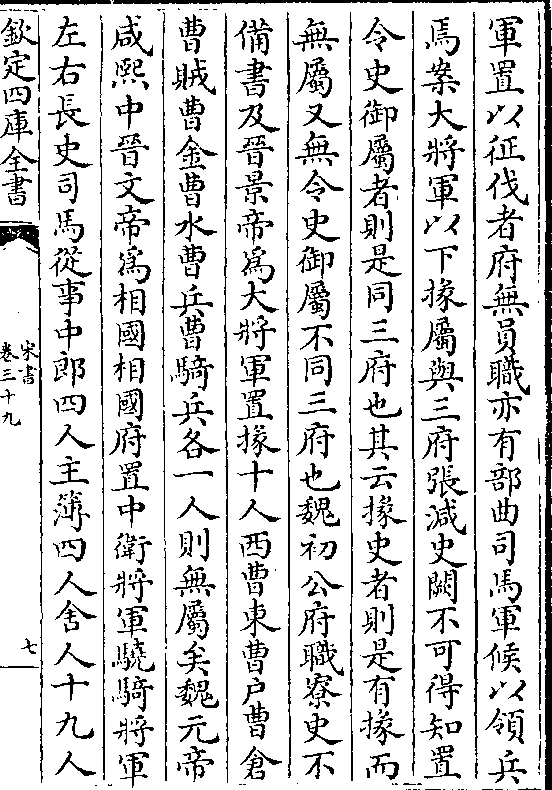 軍置以征伐者府無員職亦有部曲司馬軍候以領兵
焉案大將軍以下掾屬與三府張減史闕不可得知置
令史御屬者則是同三府也其云掾史者則是有掾而
無屬又無令史御屬不同三府也魏初公府職寮史不
備書及晉景帝為大將軍置掾十人西曹東曹户曹倉
曹賊曹金曹水曹兵曹騎兵各一人則無屬矣魏元帝
咸熙中晉文帝為相國相國府置中衛將軍驍騎將軍
左右長史司馬從事中郎四人主簿四人舍人十九人
欽定四庫全書
宋書
卷三十九
七